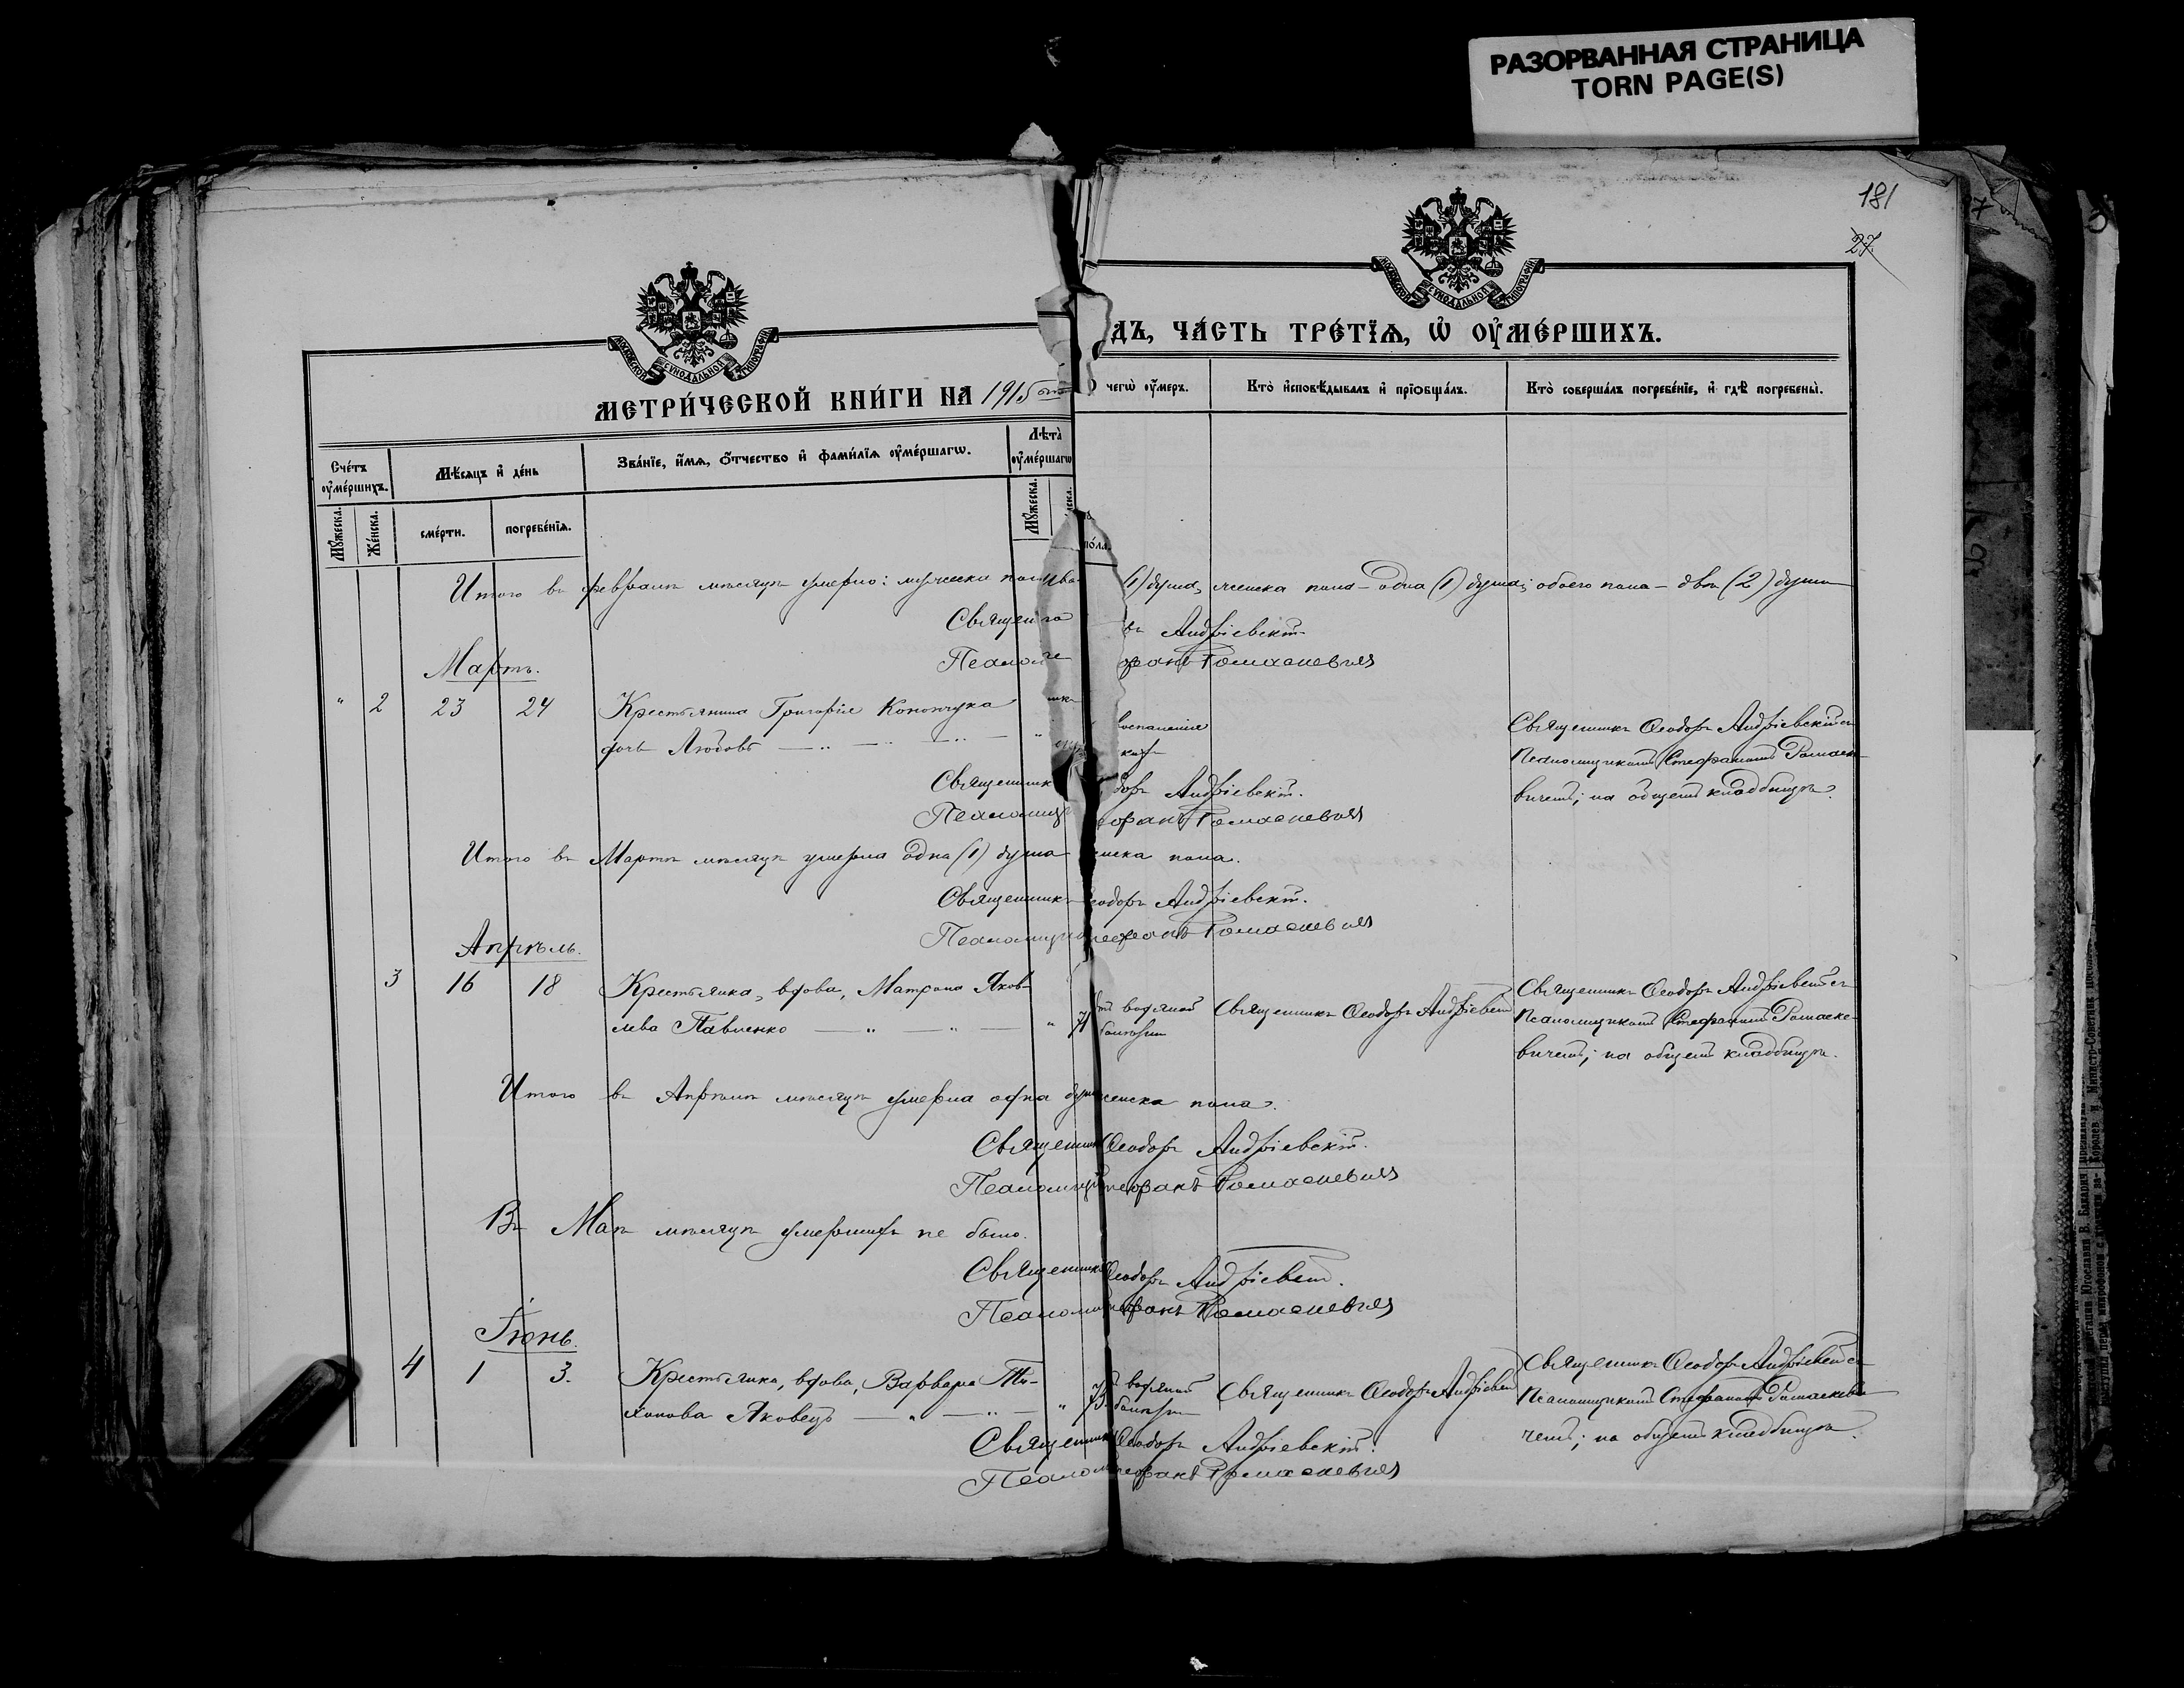 РАЗОРВАННАЯ СТРАНИЦА
TORN PAGE(S)
181
27
МОСКОВСКОЙ СѴНОДАЛЬНОЙ ТИПОГРАФІИ
МОСКОВСКОЙ СѴНОДАЛЬНОЙ ТИПОГРАФІИ
МЕТРИ́ЧЕСКОЙ КНИ́ГИ НА 1915
ДЪ, ЧА́СТЬ ТРЕ́ТЇѦ, Ѡ҆ ОУ҆МЕ́РШИХЪ.
Сче́тъ оу҆ме́ршихъ.
Мѣ́сяцъ и҆ де́нь
Зва́нїе, и҆́мѧ, ѻ҆́тчество и҆ фами́лїѧ оу҆ме́ршагѡ.
Лѣ́та оу҆ме́ршагѡ
чегѡ̀ оу҆́меръ.
Кто̀ и҆сповѣ́дывалъ и҆ прїѡбща́лъ.
Кто̀ соверша́лъ погребе́нїе, и҆ гдѣ̀ погребены̀.
Мꙋ́жеска.
Же́нска.
сме́рти.
погребе́нїѧ.
Мꙋ́жеска.
по́ла.
Итого въ февралѣ мѣсяцѣ умерло: мужеска пола (1) душа, женска пола – одна (1) душа; обоего пола – двѣ (2) души
Андріевскій
Ромаскевичъ
Мартъ.
" 2 23 24 Крестьянина Григорія Конончука
дочь Любовь воспаленія
Священникъ Ѳеодоръ Андріевскій съ
Псаломщикомъ Стефаномъ Ромаске-
вичемъ; на общемъ кладбищѣ.
Священникъ Андріевскій.
Псаломщ Ромаскевичъ
Итого въ Мартѣ мѣсяцѣ умерла одна (1) душа женска пола.
Священникъ Ѳеодоръ Андріевскій.
Псаломщикъ Стефанъ Ромаскевичъ
Апрѣль.
3 16 18 Крестьянка, вдова, Матрона Яков-
лева Павленко " 71 водяной
болѣзни
Священникъ Ѳеодоръ Андріевскій
Священникъ Ѳеодоръ Андріевскій съ
Псаломщикомъ Стефаномъ Ромаске-
вичемъ; на общемъ кладбищѣ.
Итого въ Апрѣлѣ мѣсяцѣ умерла одна душа женска пола.
Священникъ Ѳеодоръ Андріевскій.
Псаломщикъ Стефанъ Ромаскевичъ
Въ Маѣ мѣсяцѣ умершихъ не было.
Священникъ Ѳеодоръ Андріевскій.
Псаломщикъ Стефанъ Ромаскевичъ
Іюнь.
4 1 3. Крестьянка, вдова, Варвара Ти-
хонова Яковецъ " 73 водяной
болѣзни
Священникъ Ѳеодоръ Андріевскій
Священникъ Ѳеодоръ Андріевскій съ
Псаломщикомъ Стефаномъ Ромаскеви-
чемъ; на общемъ кладбищѣ.
Священникъ Ѳеодоръ Андріевскій.
Псаломщикъ Стефанъ Ромаскевичъ